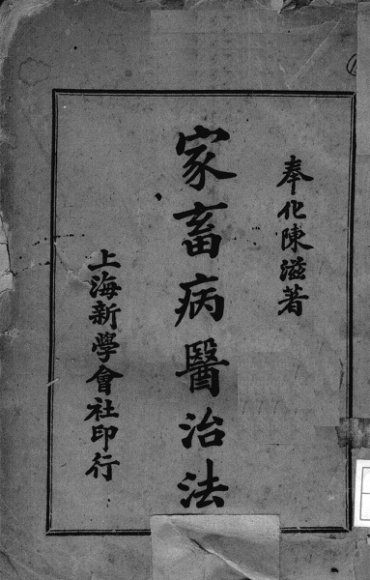 奉化陳滋著
家畜病醫治法
上海新學會社印行